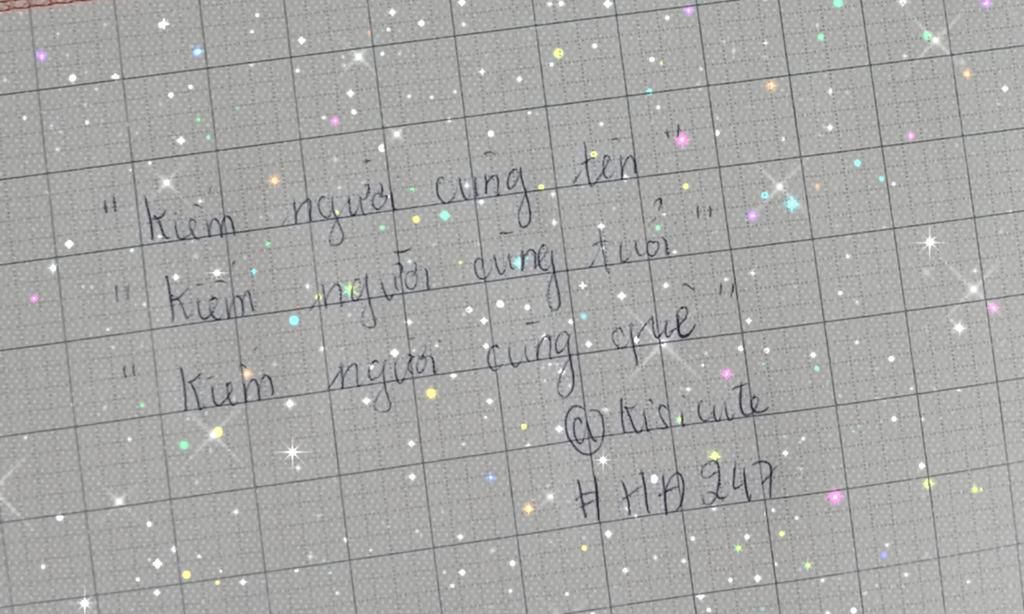 " Kiếm người cùng tên "
" Kiếm người cùng tuổi "
" Kiếm người cùng quê "
@ kisicute
# HD 247